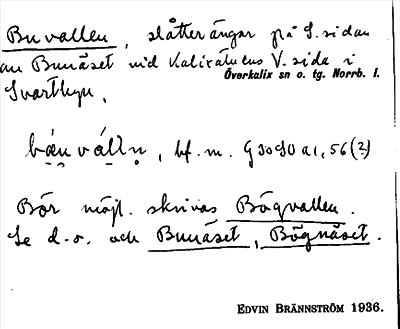 Buvallen, slåtterängar på S. sidan
av Bunäset vid Kalixälvens V. sida i
Överkalix sn o. tg. Norrb. l.
Svartbyn.
bäuválln, bf. m. G 30 90 a1, 56 (?)
Bör möjl. skrivas Bögvallen.
Se d. o. och Bunäset, Bögnäset.
EDVIN BRÄNNSTRÖM 1936.